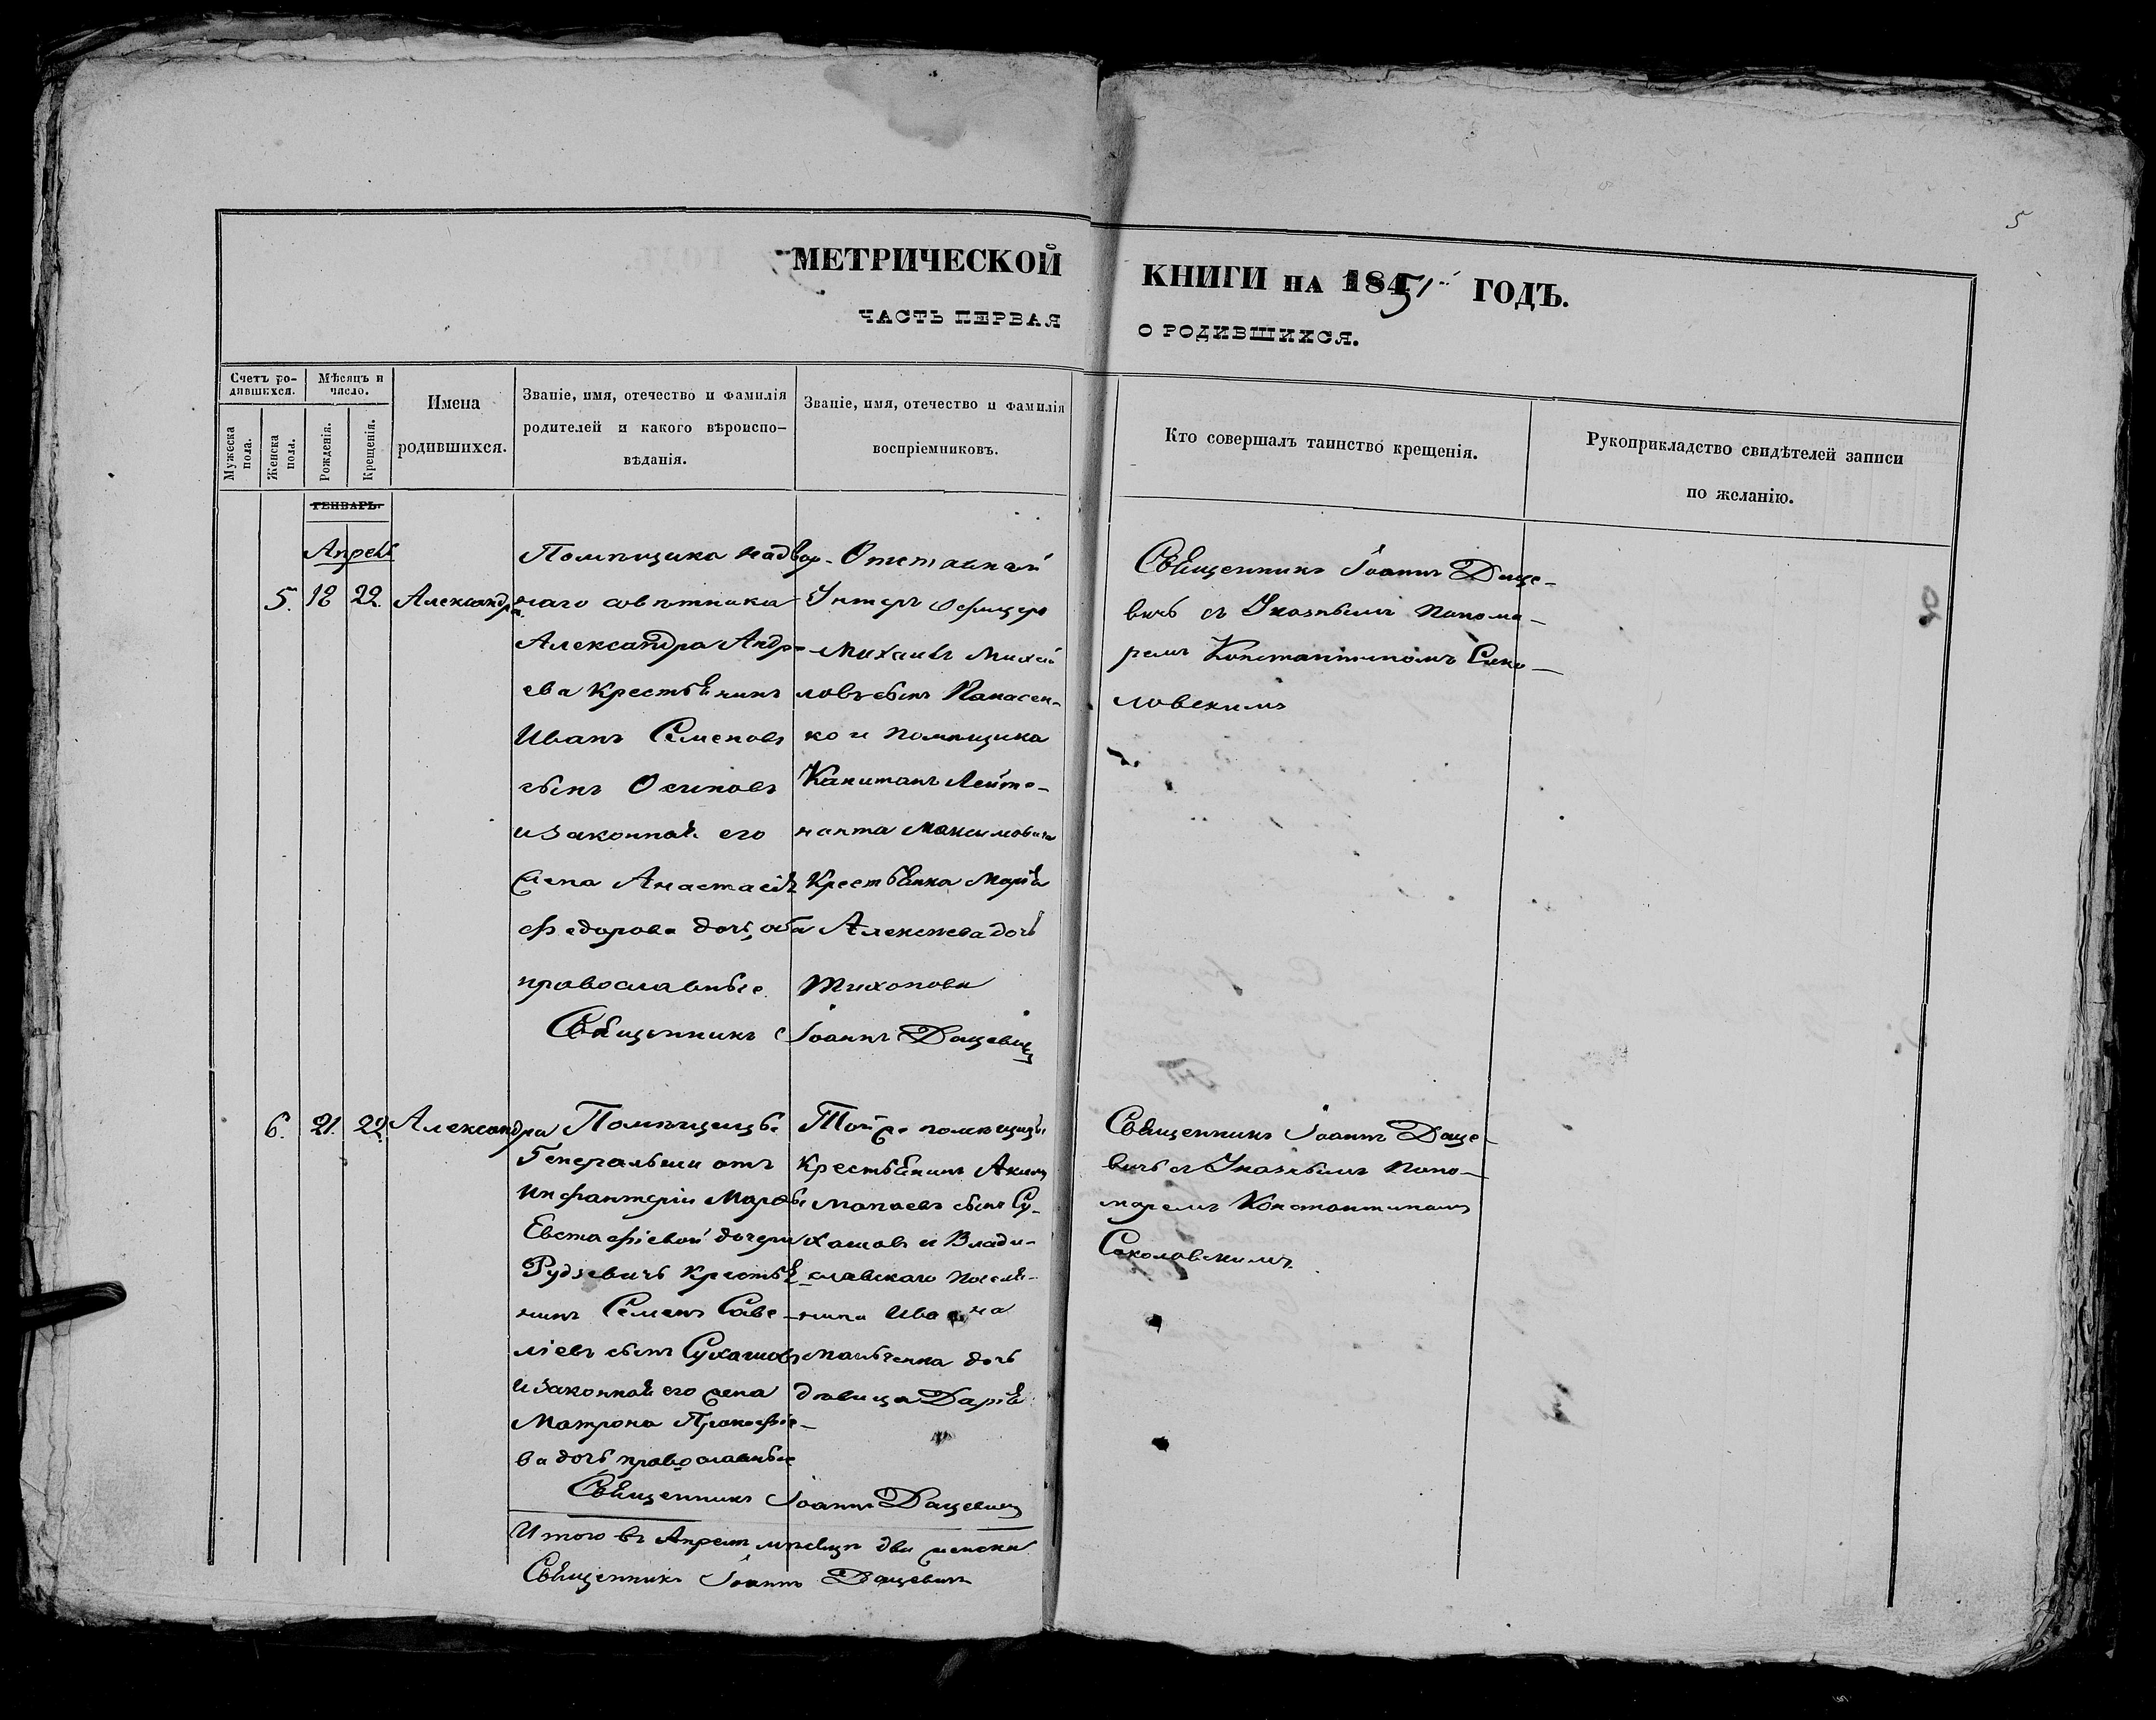 5
МЕТРИЧЕСКОЙ КНИГИ НА 1851 ГОДЪ.
ЧАСТЬ ПЕРВАЯ О РОДИВШИХСЯ.
Счетъ ро-
дившихся.
Мужеска пола.
Женска пола.
Мѣсяцъ и
число.
Рожденія.
Крещенія.
Имена
родившихся.
Званіе, имя, отечество и фамилія
родителей и какого вѣроиспо-
вѣданія.
Званіе, имя, отечество и фамилія
воспріемниковъ.
Кто совершалъ таинство крещенія.
Рукоприкладство свидѣтелей записи
по желанію.
ГЕНВАРЬ.
Апрель
5. 18 22. Александра
Помѣщика надвор-
наго совѣтника
Александра Андр-
ева крестьянинъ
Иванъ Семеновъ
сынъ Осиповъ
и законной его
жена Анастасія
Федорова дочь, оба
православные.
Отставной
Унтеръ офицеръ
Михаилъ Михай
ловъ сынъ Панасен-
ко и помѣщика
Капитанъ Лейте-
нанта Максимовича
Крестьянка Марія
Алексѣева дочь
Тихонова
Священникъ Іоаннъ Дащевичъ
Священникъ Іоаннъ Даще-
вичь съ Указнымъ понома-
ремъ Константиномъ Соко-
ловскимъ
6. 21. 22. Александра
Помѣщицы
Генеральши отъ
Инфантеріи Марфы
Евстафіевой дочери
Рудзевичъ крестья
нинъ Семенъ Саве-
ліевъ сынъ Сухашовъ
и законной его жена
Матрона Прокофіе-
ва дочь православные
Той же помѣщицы
крестьянинъ Акимъ
сынъ Су-
хашовъ и Влади-
славскаго поселя-
нина Ивана
дочь
дѣвица Дарія
Священникъ Іоаннъ Дащевичъ
Священникъ Іоаннъ Даще-
вичъ съ Указнымъ поно-
маремъ Константиномъ
Соколовскимъ.
Итого въ Апрелѣ мѣсяцѣ два женска
Священникъ Іоаннъ Дащевичъ